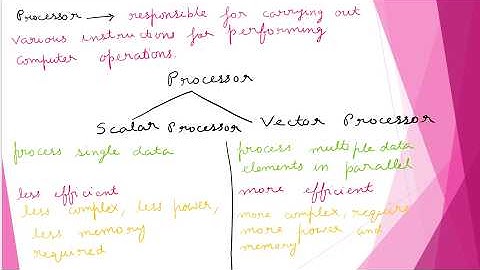 Processor → responsible for carrying out
various instructions for performing
computer operations.
Processor
Scalar Processor
Vector Processor
process single data
less efficient
less complex, less power,
less memory
required
process multiple data
elements in parallel
more efficient
more complex, require
more power and
memory